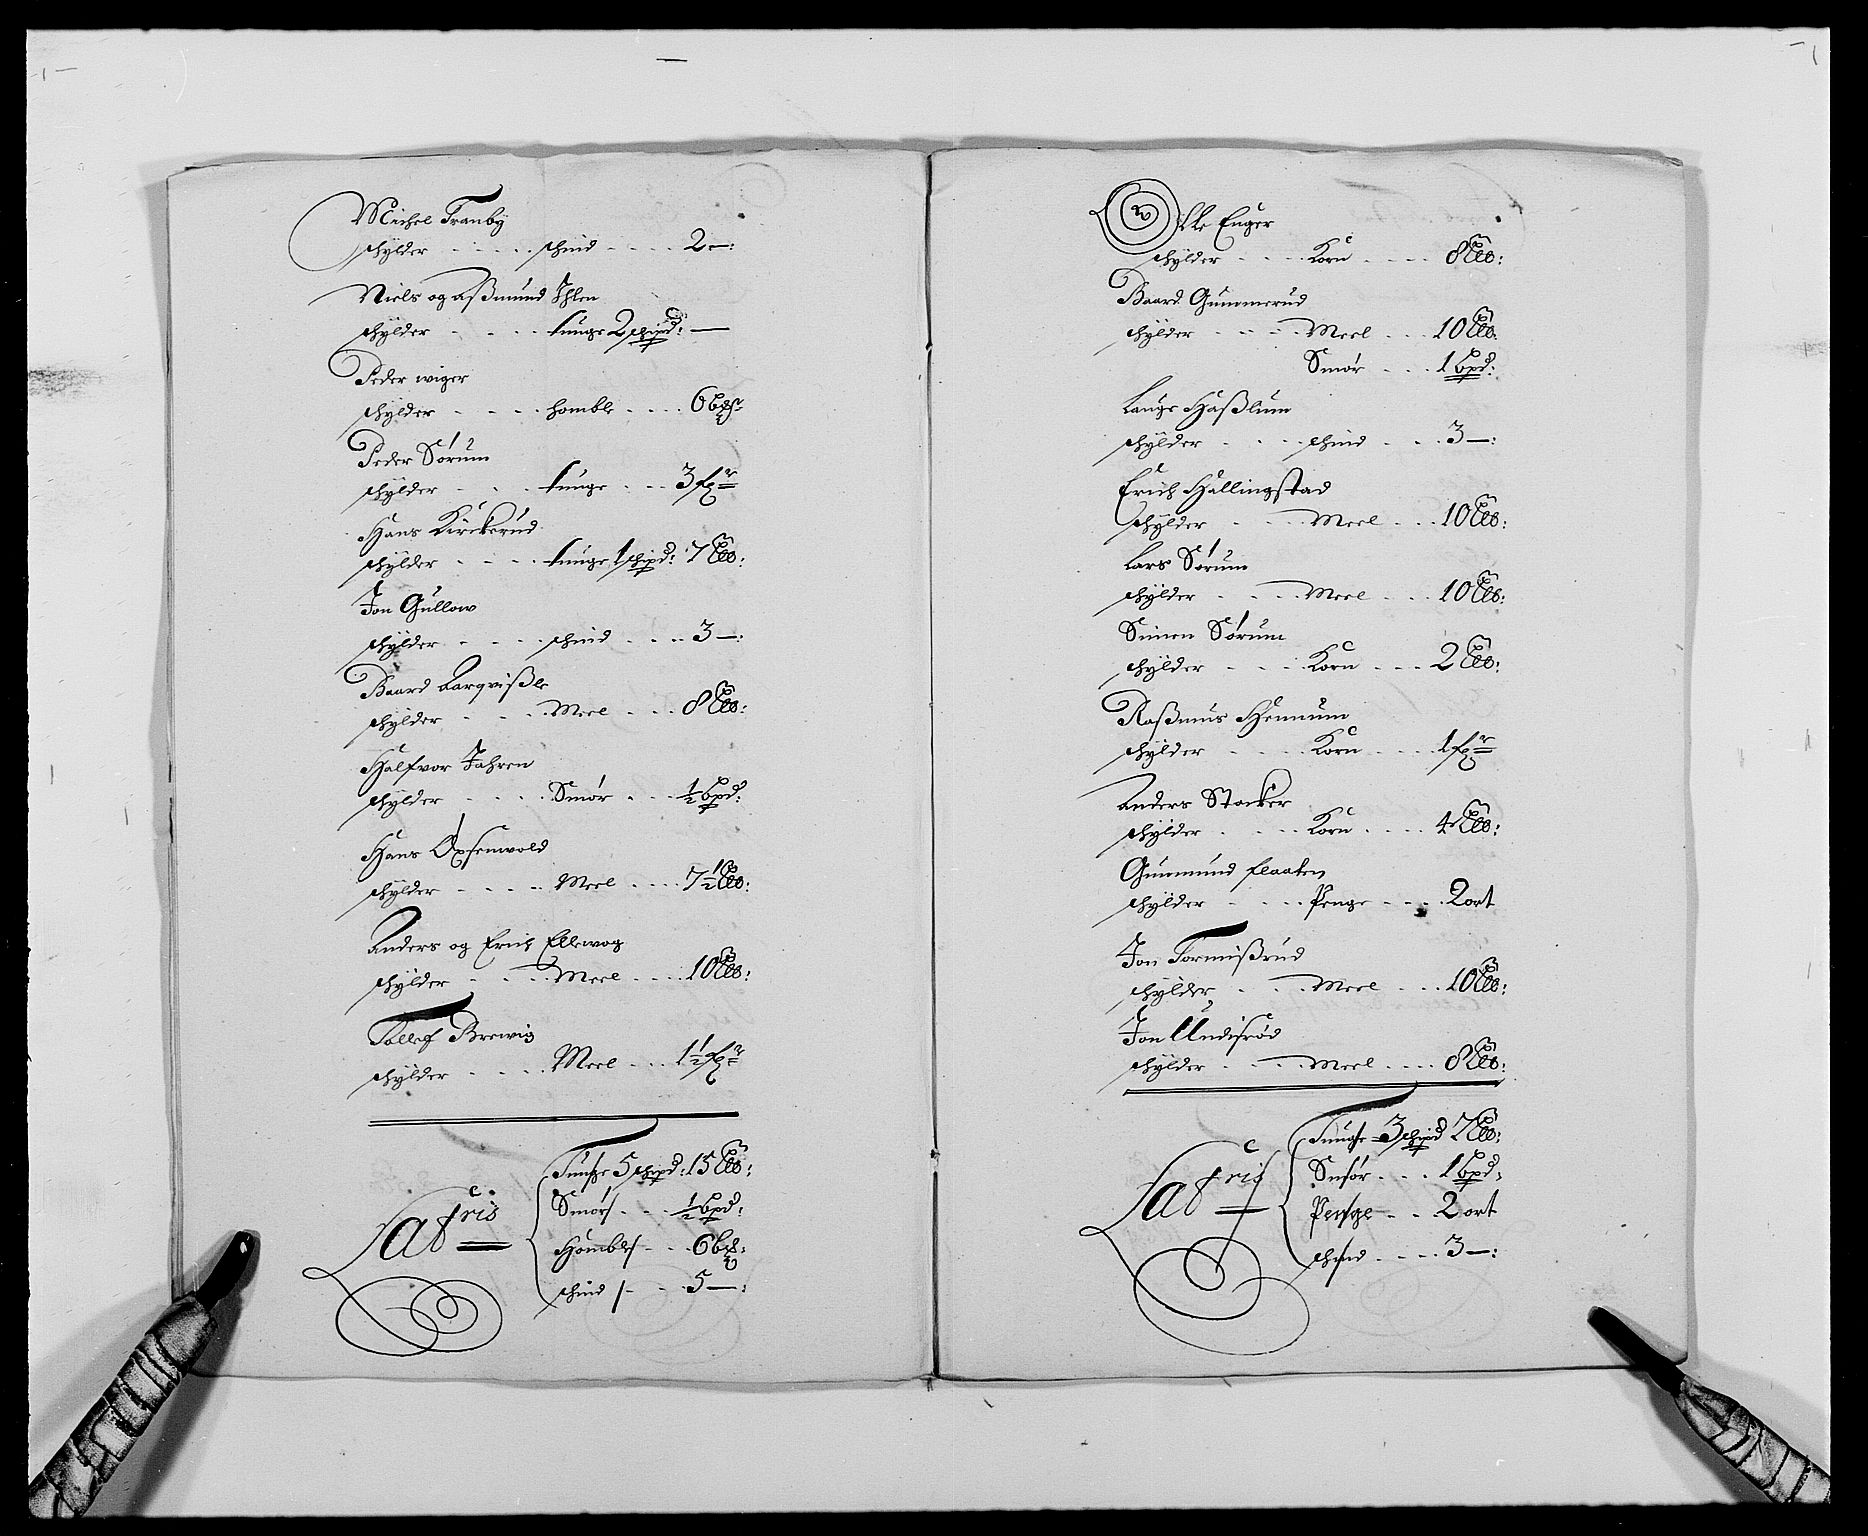 Michel Tranby
schylder - - - - - schind - - - - 2 —:
Niels og aßmund Ihlen
schylder - - - - tunge 2 schipd: —
Peder wiger
schylder - - - - homble - - - - 6 bpd
Peder Sørum
schylder - - - tunge - - - 3 fr
Hans Kirckerud
schylder - - - - tunge 1 schipd: 7 Lb:
Jon Gullow
schylder - - - - schind - - - - 3 —:
Baard aarqvißle
schylder - - - - Meel - - - 8 Lb:
Halfvor Jahren
schylder - - - - Smør - - - ½ bpd:
Hans Oxsenvold
schylder - - - - - Meel - - - - 7½ Lb:
Anders og Erich Ellewog
schylder - - - - Meel - - - - 10 Lb:
Tollef Brewig
schylder - - - - - Meel - - - 1½ fr
Latris
Tunge 5 schipd: 15 Lb:
Smør - - - ½ bpd:
Homble - - - 6 bpd:
schind - - - 5 —:
Olle Enger
schylder - - - - Korn - - - - 8 Lb:
Baard Gummerud
schylder - - - - Meel - - - 10 Lb:
Smør - - - 1 bpd:
Lauge Haßlum
schylder - - - - schind - - - 3 —:
Erich Hallingstad
schylder - - - - Meel - - - 10 Lb:
Lars Sørum
schylder - - - - Meel - - - 10 Lb:
Simen Sørum
schylder - - - - Korn - - - 2 Lb:
Raßmus Hennum
schylder - - - - Korn - - - - 1 fr
Anders Stocker
schylder - - - - Korn - - - - 4 Lb:
Gunmund flaaten
schylder - - - - Penge - - - - 2 ort
Jon Tormißrud
schylder - - - Meel - - - 10 Lb:
Jon Undisrød
schylder - - - - Meel - - - - 8 Lb:
Latris
Tunge 3 schipd 7 Lb:
Smør - - - 1 bpd:
Penge - - 2 ort
schind - - - - 3 —: